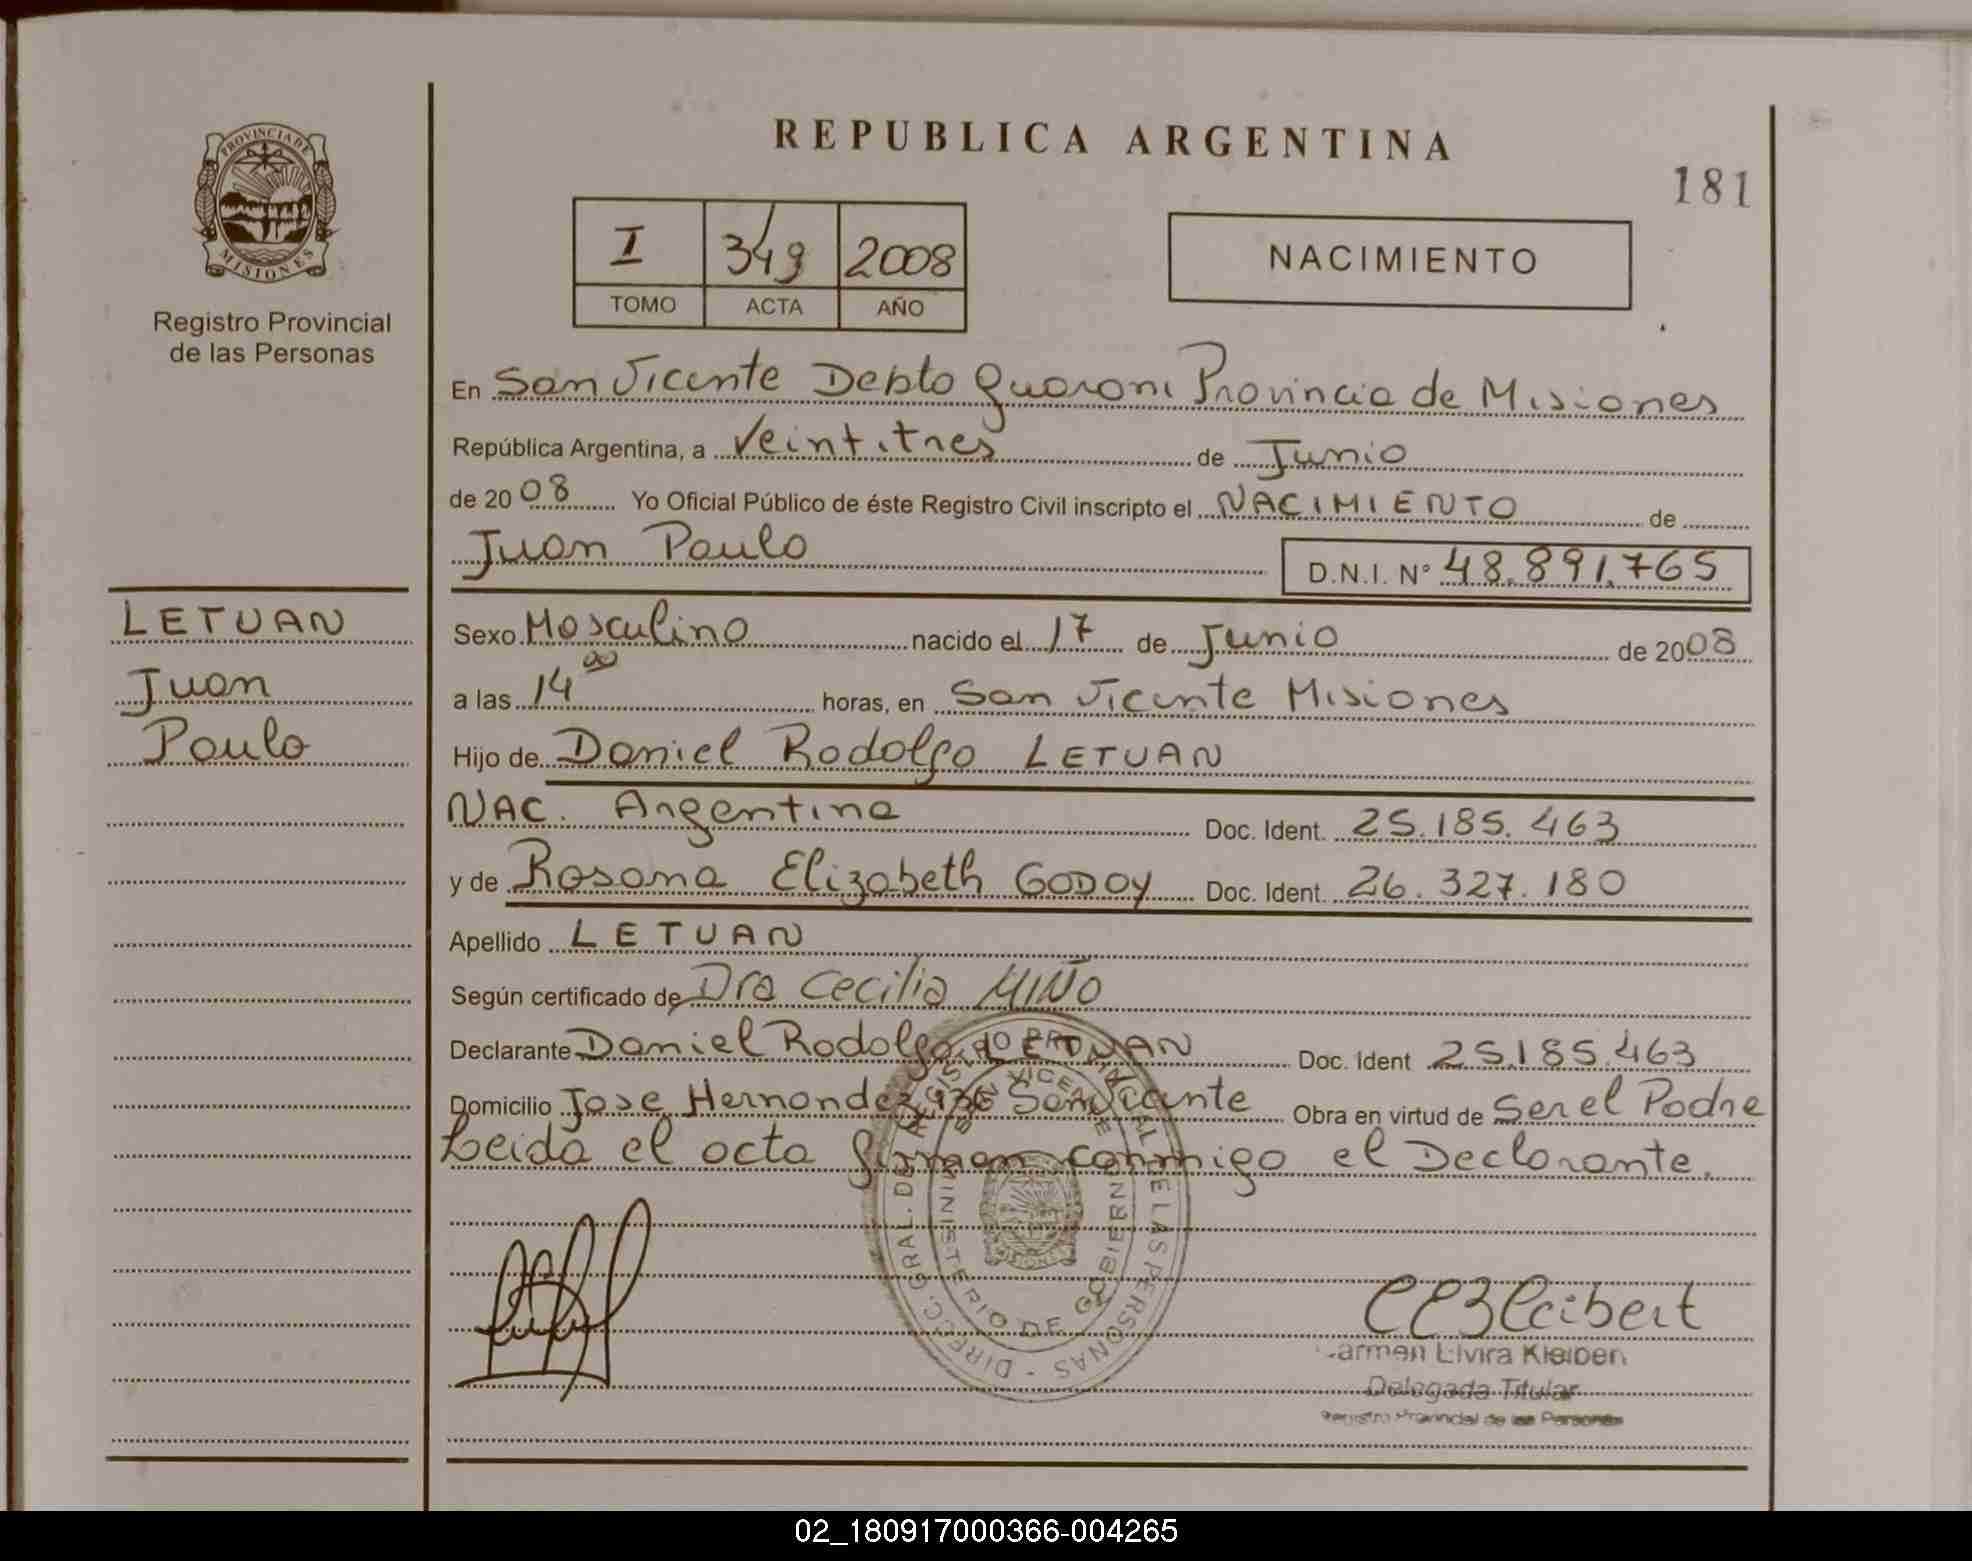 REPUBLICA ARGENTINA
181
PROVINCIA DE
MISIONES
Registro Provincial
de las Personas
I 349 2008
TOMO ACTA AÑO
NACIMIENTO
En San Vicente Depto Guarani Provincia de Misiones
República Argentina, a Veintitres de Junio
de 2008 Yo Oficial Público de éste Registro Civil inscripto el NACIMIENTO de
Juan Paulo D.N.I. N° 48.891.765
LETUAN
Juan
Paulo
Sexo Masculino nacido el 17 de Junio de 2008
a las 14 00 horas, en San Vicente Misiones
Hijo de Daniel Rodolfo LETUAN
NAC. Argentina Doc. Ident. 25.185.463
y de Rosana Elizabeth GODOY Doc. Ident. 26.327.180
Apellido LETUAN
Según certificado de Dra Cecilia MIÑO
Declarante Daniel Rodolfo LETUAN Doc. Ident 25.185.463
Domicilio Jose Hernandez San Vicente Obra en virtud de Ser el Padre
Leida el acta firman conmigo el Declarante.
DIRECC. GRAL. DEL REGISTRO PROVINCIAL DE LAS PERSONAS
SAN VICENTE
MINISTERIO DE GOBIERNO
MISIONES
Carmen Elvira Kleibert
Delegada Titular
Registro Provincial de las Personas
02_180917000366-004265